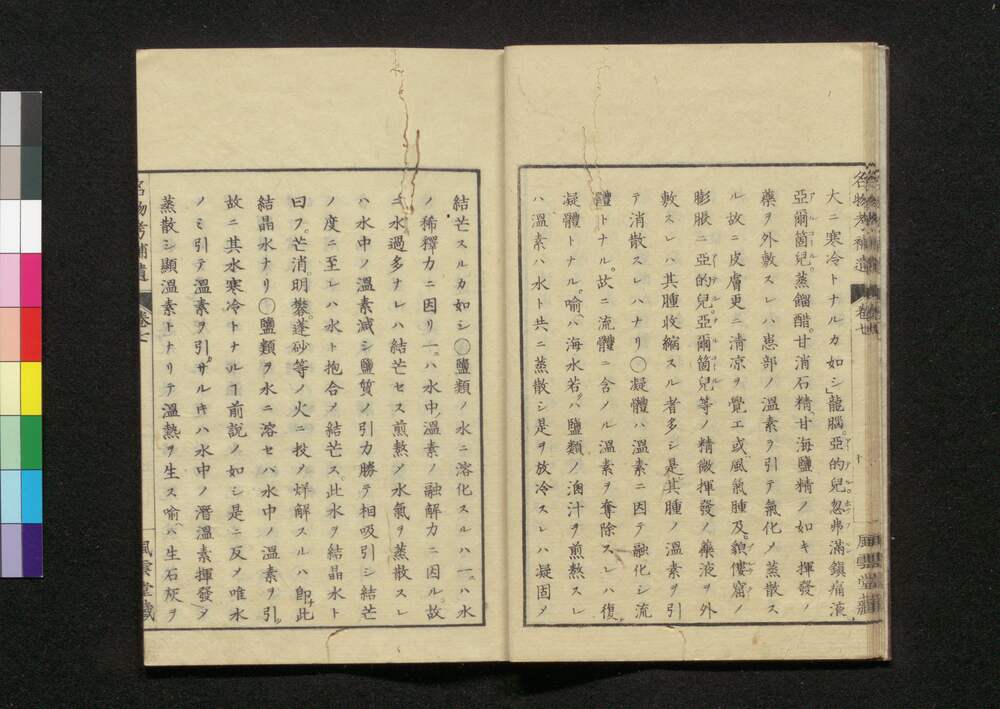 名物考補遺 卷七 風雲堂藏
大ニ寒冷トナルカ如シ」龍腦。亞的兒。忽弗滿鎮痛液
亞爾箇兒。蒸餾醋。甘消石精、甘海鹽精ノ如キ揮發ノ
藥ヲ外敷スレハ患部ノ溫素ヲ引テ氣化メ蒸散ス
ル故ニ皮膚更ニ清凉ヲ覺エ或風氣腫及
膨脹ニ亞的兒。亞爾箇兒等ノ精微揮發ノ藥液ヲ外
敷スレハ其腫收縮スル者多シ是其腫ノ溫素ヲ引
テ消散スレハナリ○凝體ハ溫素ニ因テ融化シ流
體トナル。故ニ流體ニ含メル溫素ヲ奪除スレハ復
凝體トナル。喻ハ海水若クハ鹽類ノ滷汁ヲ煎熬スレ
ハ溫素ハ水ト共ニ蒸散シ是ヲ放冷スレハ凝固メ
結芒スルカ如シ○鹽類ノ水ニ溶化スルハ一ハ水
ノ稀釋力ニ因リ一ハ水中溫素ノ融解力ニ因ル故
ニ水過多ナレハ結芒セス煎熬メ水氣ヲ蒸散スレ
ハ水中ノ溫素減シ鹽質ノ引力勝テ相吸引シ結芒
ノ度ニ至レハ水ト抱合メ結芒ス。此水ヲ結晶水ト
曰フ。芒消。明礬。蓬砂等ノ火ニ投メ烊解スルハ卽此
結晶水ナリ○鹽類ヲ水ニ溶セハ水中ノ溫素ヲ引。
故ニ其水寒冷トナルヿ前說ノ如シ是ニ反メ唯水
ノミ引テ溫素ヲ引サルキハ水中ノ潛溫素揮發メ
蒸散シ顯溫素トナリテ溫熱ヲ生ス喻ハ生石灰ヲ
名物考補遺 卷七 風雲堂藏